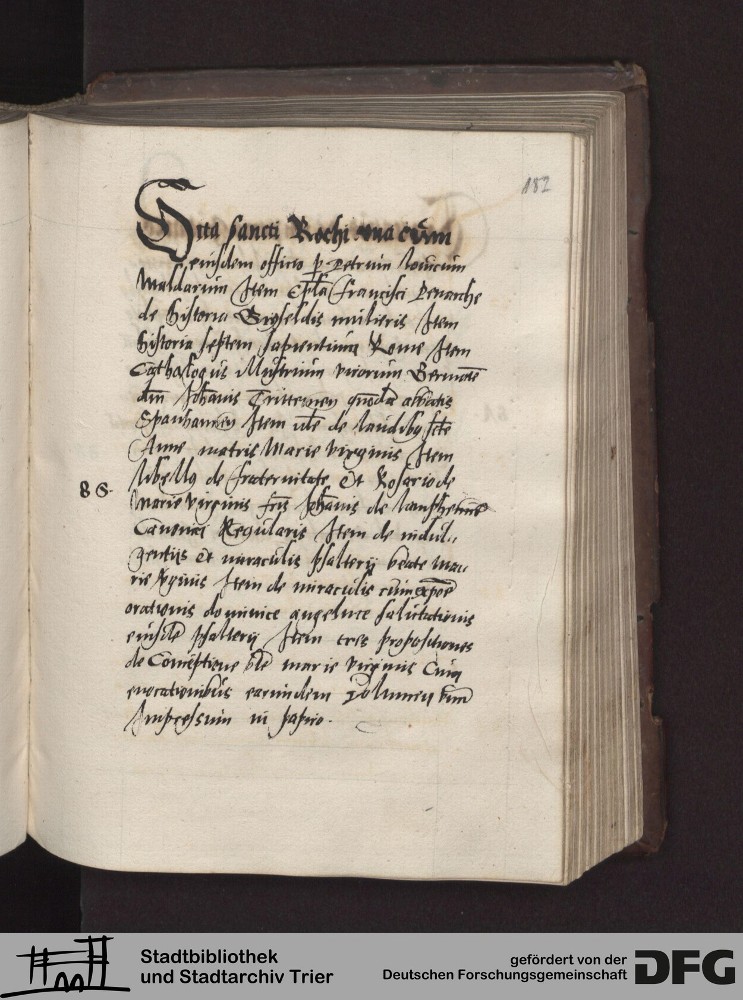 182
Vita sancti Rochi vna cum
eiusdem officio p petrum louicum
Maldarum Item Epla francisci Petrarche
de historia Griseldis mulieris Item
historia septem sapientium Rome Item
Cathalogus Illustrium virorum
dm Johanis Trittemen quodā abbatis
Spanhamen Item de laudibꝰ scte
Anne matris Marie virginis Item
libellꝰ de fraternitate Et Rosario de
8 S. Marie virginis fris Johanis de
Canonici Regularis Item de indul„
gentijs Et miraculis psalterij beate ma„
rie vginis Item de miraculis cum
orationis dominice angelice salutationis
eiusdē psalterij Item tres propositiones
de Conceptione bte marie virginis Cum
earundem volumen
Impressum in papiro.
Stadtbibliothek
und Stadtarchiv Trier
gefördert von der
Deutschen Forschungsgemeinschaft
DFG